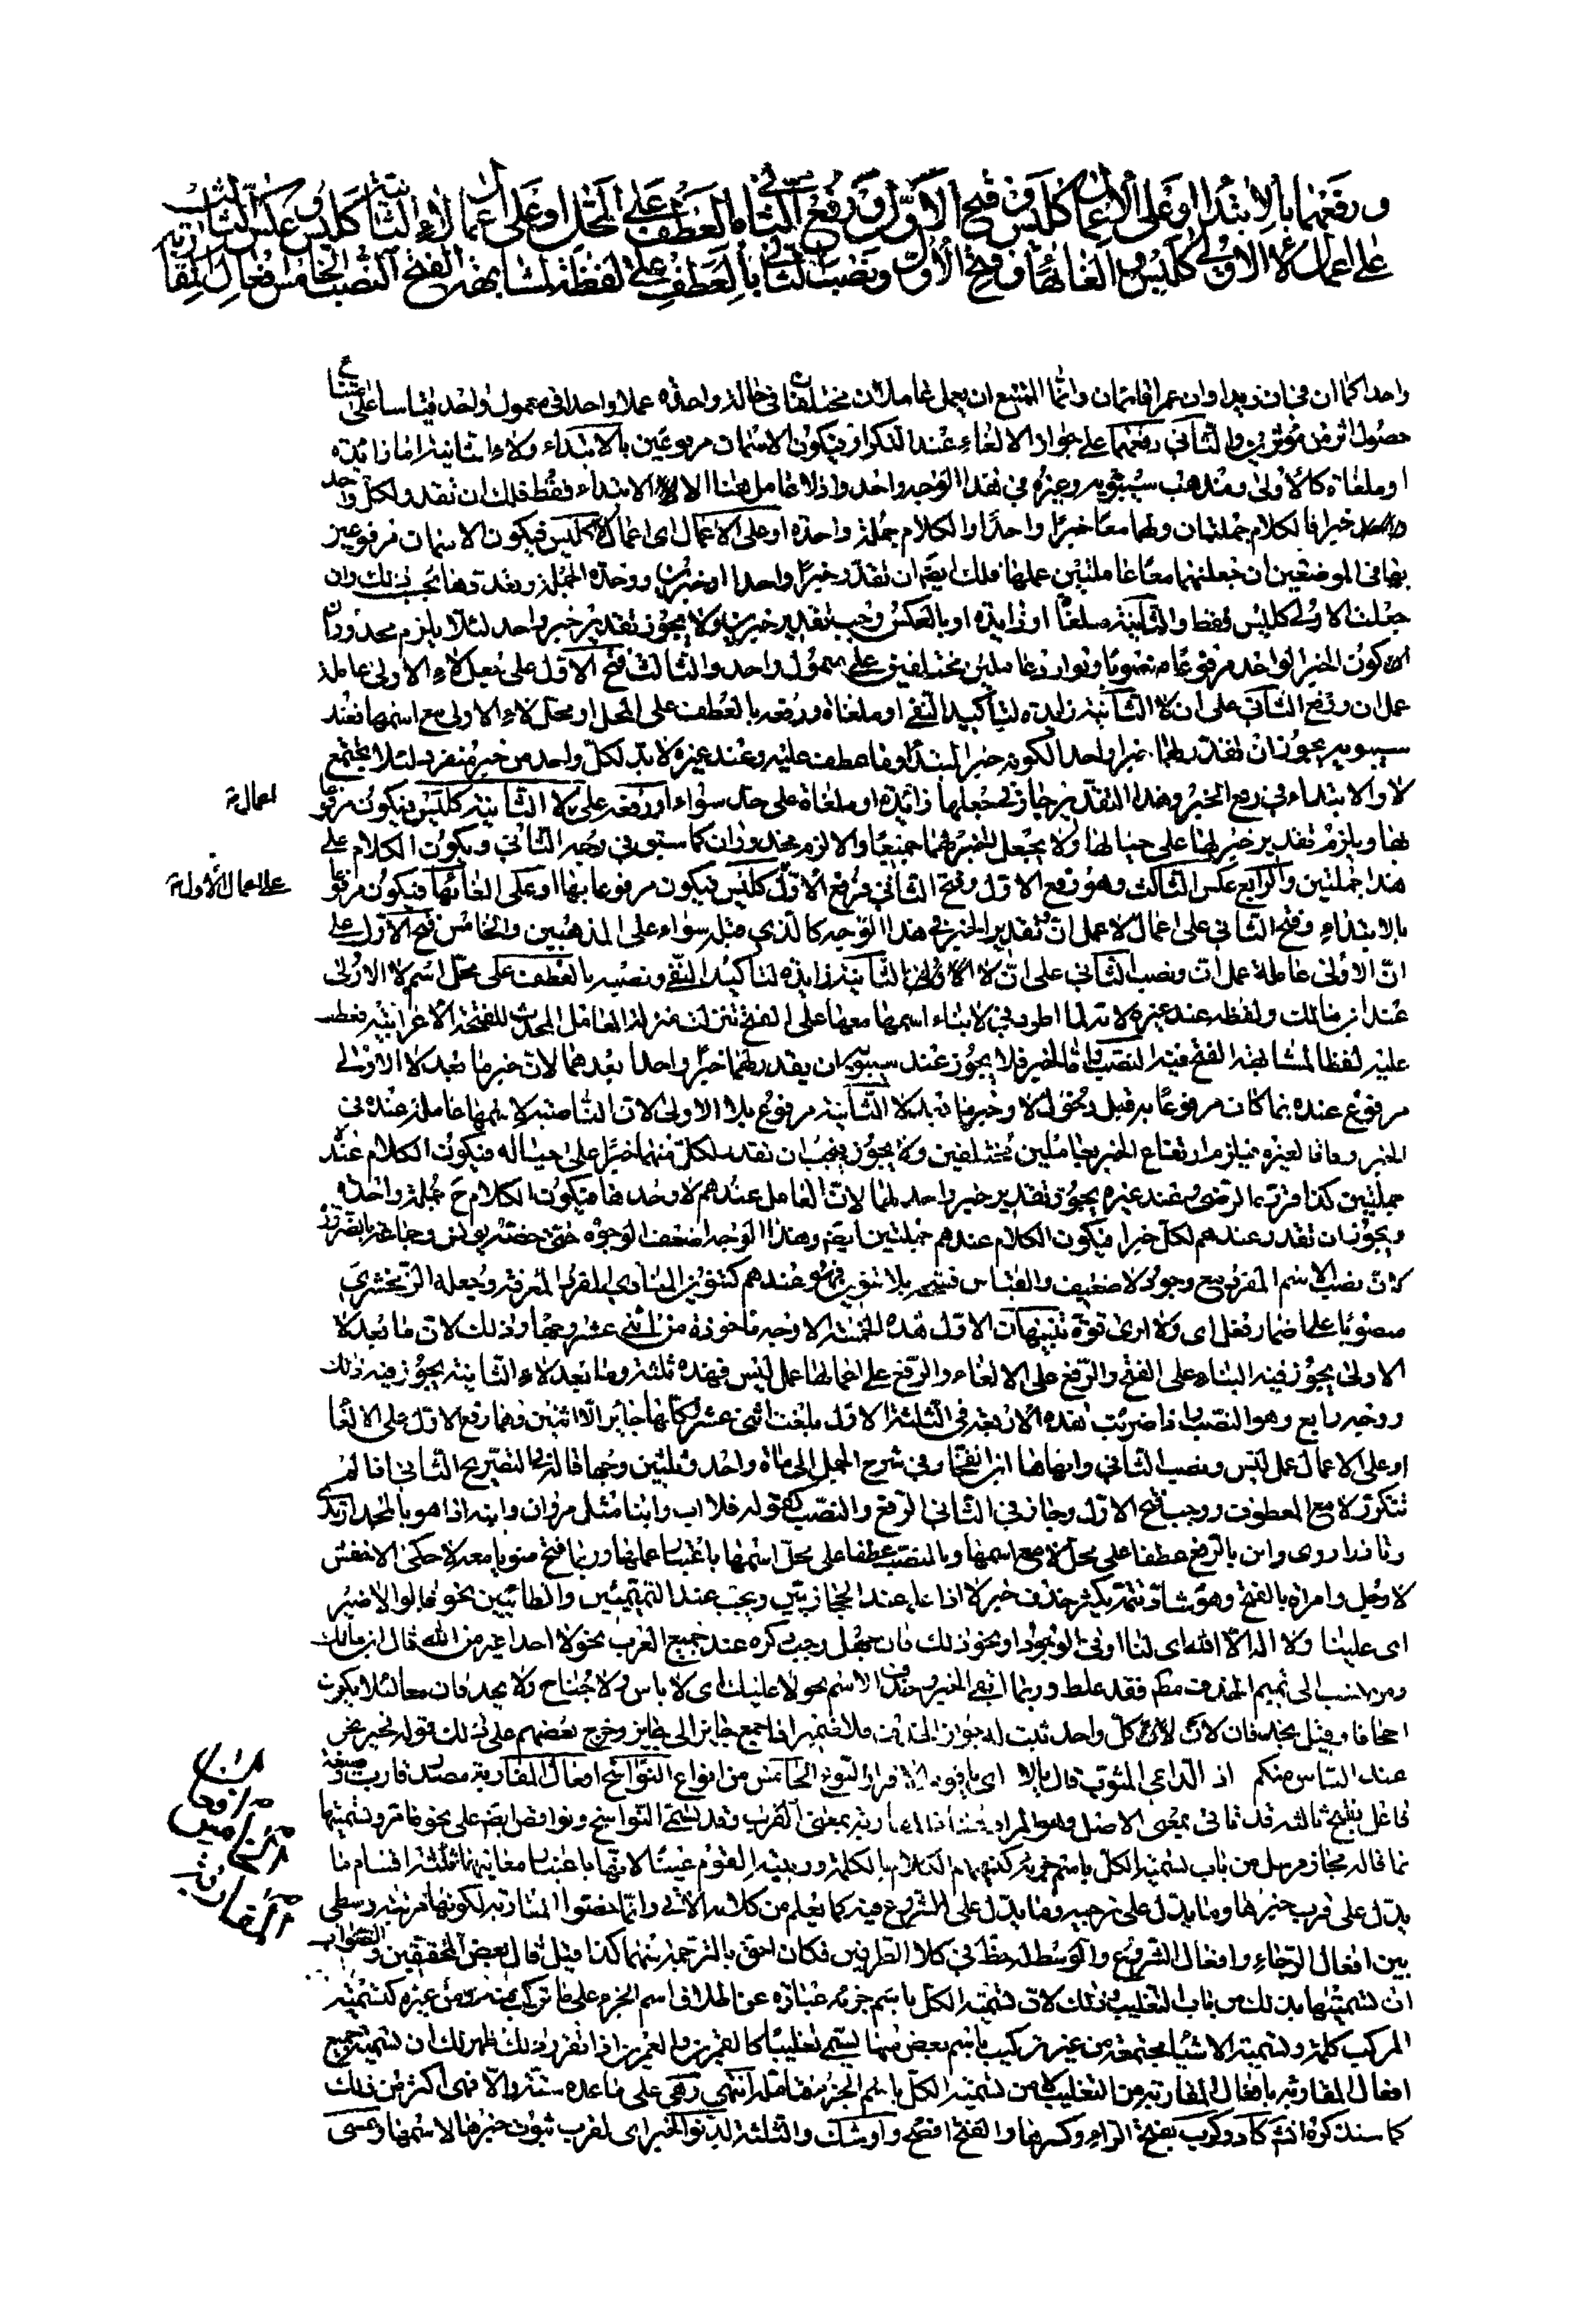 ورفعهما بالابتداء او على الاعمال كليس وفتح الاول ورفع الثاني بالعطف على المحل او على اعمال لاء الثانية كليس وعكس الثالث
على اعمال لاء الاولى كليس والغائها وفتح الاول ونصب الثاني بالعطف على لفظه لمشابهة الفتح النصب الخامس افعال المقاربة
واحدا كما ان في ان زيدا وان عمرا قائمان وانما الممتنع ان يعمل عاملان مختلفان في حالة واحدة عملا واحدا في معمول واحد قياسا على امتناع
حصول اثر من مؤثرين والثاني رفعهما على جواز الالغاء عند التكرار فيكون الاسمان مرفوعين بالابتداء ولاء الثانية اما زائدة
او ملغاة كالاولى ومذهب سيبويه وغيره في هذا الوجه واحد واذ لا عامل هنا الا الابتداء فقط فلك ان تقدر لكل واحد
خبرا فالكلام جملتان ولهما معا خبرا واحدا والكلام جملة واحدة او على الاعمال اى اعمال لا كليس فيكون الاسمان مرفوعين
بها في الموضعين ان جعلتهما معا عاملتين عملها فلك ايضا ان تقدر خبرا واحدا او خبرين ووحدة الجملة وتعددها بحسب ذلك وان
جعلت الاولى كليس فقط والثانية ملغاة او زايدة او بالعكس وجب تقدير خبرين ولا يجوز تقدير خبر واحد لئلا يلزم محذوران
كون الخبر الواحد مرفوعا منصوبا وتوارد عاملين مختلفين على معمول واحد والثالث فتح الاول على جعل لاء الاولى عاملة
عمل ان ورفع الثاني على ان لا الثانية زائدة لتاكيد النفى او ملغاة ورفعه بالعطف على المحل او محل لاء الاولى مع اسمها فعند
سيبويه يجوز ان تقدر لهما خبرا واحدا لكونه خبر المبتدا وما عطف عليه وعند غيره لابد لكل واحد من خبر منفرد لئلا يجتمع
لا والابتداء في رفع الخبر وهذا التقدير جاز في جعلها زائدة او ملغاة على حد سواء او رفعه على لا الثانية كليس فيكون مرفوعا
بها ويلزم تقدير خبر لها على حيالها ولا يجعل الخبر لهما جميعا والا لزم محذوران كما سبق في وجه الثاني ويكون الكلام على
هذا جملتين والرابع عكس الثالث وهو رفع الاول وفتح الثاني فرفع الاول كليس فيكون مرفوعا بها او على الغائها فيكون مرفوعا
بالابتداء وفتح الثاني على اعمال لا عمل ان تقدير الخبر في هذا الوجه كالذي قبله سواء على المذهبين والخامس فتح الاول على
ان الاولى عاملة عمل ان ونصب الثاني على ان لا الثانية زايدة لتاكيد النفى ونصبه بالعطف على محل اسم لا الاولى
عند ابن مالك ولفظه عند غيره لا تدلما اطرد في لا بناء اسمها معها على الفتح تنزلت منزلة العامل المحدث للفتحة الاعرابية فعطف
عليه لفظا لمشابهة الفتح فيه النصب واما الخبر فلا يجوز عند سيبويه ان يقدر لهما خبرا واحدا بعدهما لان خبر ما بعد لا الاولى
مرفوع عنده بما كان مرفوعا به قبل دخول لا وخبر ما بعد لا الثانية مرفوع بلا الاولى لان الناصبة لاسمها عاملة عنده في
الخبر وفاقا لغيره فيلزم ارتفاع الخبر بعاملين مختلفين ولا يجوز فيجب ان تقدر لكل منهما خبرا على حياله فيكون الكلام عنده
جملتين كذا قرره الرضي وعند غيره يجوز تقدير خبر واحد لهما لان العامل عندهم لا وحدها فيكون الكلام ح جملة واحدة
ويجوز ان تقدر عندهم لكل خبرا فيكون الكلام عندهم جملتين ايضا وهذا الوجه اضعف الوجوه حتى خصه يونس وجماعة بالضرورة
لان نصب الاسم المفرد مع وجود لا ضعيف والقياس فتحه بلا تنوين فهو عندهم كتنوين المنادى المفرد المعرفة وجعله الزمخشري
منصوبا على اضمار فعل اى ولا ارى قوة تنبيهات الاول هذه الخمسة الاوجه ماخوذة من اثنى عشر وجها وذلك لان ما بعد لا
الاولى يجوز فيه البناء على الفتح والرفع على الالغاء والرفع على اعمالها عمل ليس فهذه ثلثة وما بعد لاء الثانية يجوز فيه ذلك
ووجه رابع وهو النصب فاذا ضربت هذه الاربعة في الثلثة الاول بلغت اثنى عشر وكلها جايز الا اثنين وهما رفع الاول على الالغا
او على الاعمال عمل ليس ونصب الثاني وانهاها ابن الفخار في شرح الجمل الى مائة واحد وثلثين وجها قاله في التصريح الثاني اذا لم
تتكرر لا مع المعطوف وجب فتح الاول وجاز في الثاني الرفع والنصب كقوله فلا اب وابنا مثل مروان وابنه اذا هو بالمجد ارتدى
وتازرا روى وابن بالرفع عطفا على محل لا مع اسمها وبالنصب عطفا على محل اسمها باعتبار عملها وربما فتح منويا معه لا حكى الاخفش
لا رجل وامراة بالفتح وهو شاذ تتمة يكثر حذف خبر لا اذا علم عند الحجازيين ويجب عند التميميين والطائيين نحو قالوا لا ضير
اى علينا ولا اله الا الله اى لنا او في الوجود او نحو ذلك فان جهل وجب ذكره عند جميع العرب نحو لا احد اغير من الله قال ابن مالك
ومن نسب الى تميم الحذف مطلقا فقد غلط وربما ابقى الخبر وحذف الاسم نحو لا عليك اى لا باس ولا جناح ولا يحذفان معا لئلا يكون
اجحافا وقيل يحذفان لان كل واحد ثبت له جواز الحذف فلا ضير اذا جمع جايز الى جايز وخرج بعضهم على ذلك قوله فخير نحن
عند الناس منكم اذ الداعي المثوب قال يالا اى يا قوم لا فرار النوع الخامس من انواع النواسخ افعال المقاربة مصدر قارب وصيغة
فاعل بفتح ثالثه قد تاتي بمعنى الاصل وهو المراد هنا فالمقاربة بمعنى القرب وقد تسمى النواسخ ونواقص ايضا على نحو ما مر وتسميتها
بما قاله مجاز مرسل من باب تسمية الكل باسم جزئه كتسميتهم الكلام بالكلمة وربيئة القوم عينا لانها باعتبار معانيها ثلثة اقسام ما
يدل على قرب خبرها وما يدل على ترجيه وما يدل على الشروع فيه كما يعلم من كلامه الآتي وانما خصوا المقاربة لكونها مرتبة وسطى
بين افعال الرجاء وافعال الشروع والوسط له حظ في كلا الطرفين فكان احق بالترجمة منهما كذا قيل قال بعض المحققين والصواب
ان تسميتها بذلك من باب التغليب وذلك لان تسمية الكل باسم جزئه عبارة عن اطلاق اسم الجزء على ما تركب منه ومن غيره كتسمية
المركب كلمة وتسمية الاشياء مجتمعة من غير تركيب باسم بعض منها يسمى تغليبا كالقمرين والعمرين اذا تقرر ذلك ظهر لك ان تسمية جميع
افعال المقاربة بافعال المقاربة من التغليب لا من تسمية الكل باسم الجزء فتامله انتهى وهي على ما عده ستة والا فهى اكثر من ذلك
كما سنذكره انتم كاد وكرب بفتح الراء وكسرها والفتح افصح واوشك والثلثة لدنو الخبر اى لقرب ثبوت خبرها لاسمها وعسى
اعمالة
على اعمال الاولة
افعال
المقاربة